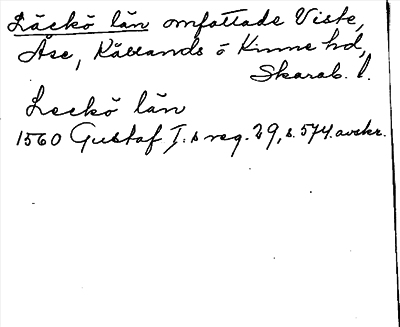 Läckö län omfattade Viste,
Åse, Kållands o Kinne hd,
Skarab. l.
Leckö län
1560 Gustaf I.s reg. 29, s. 574. avskr.